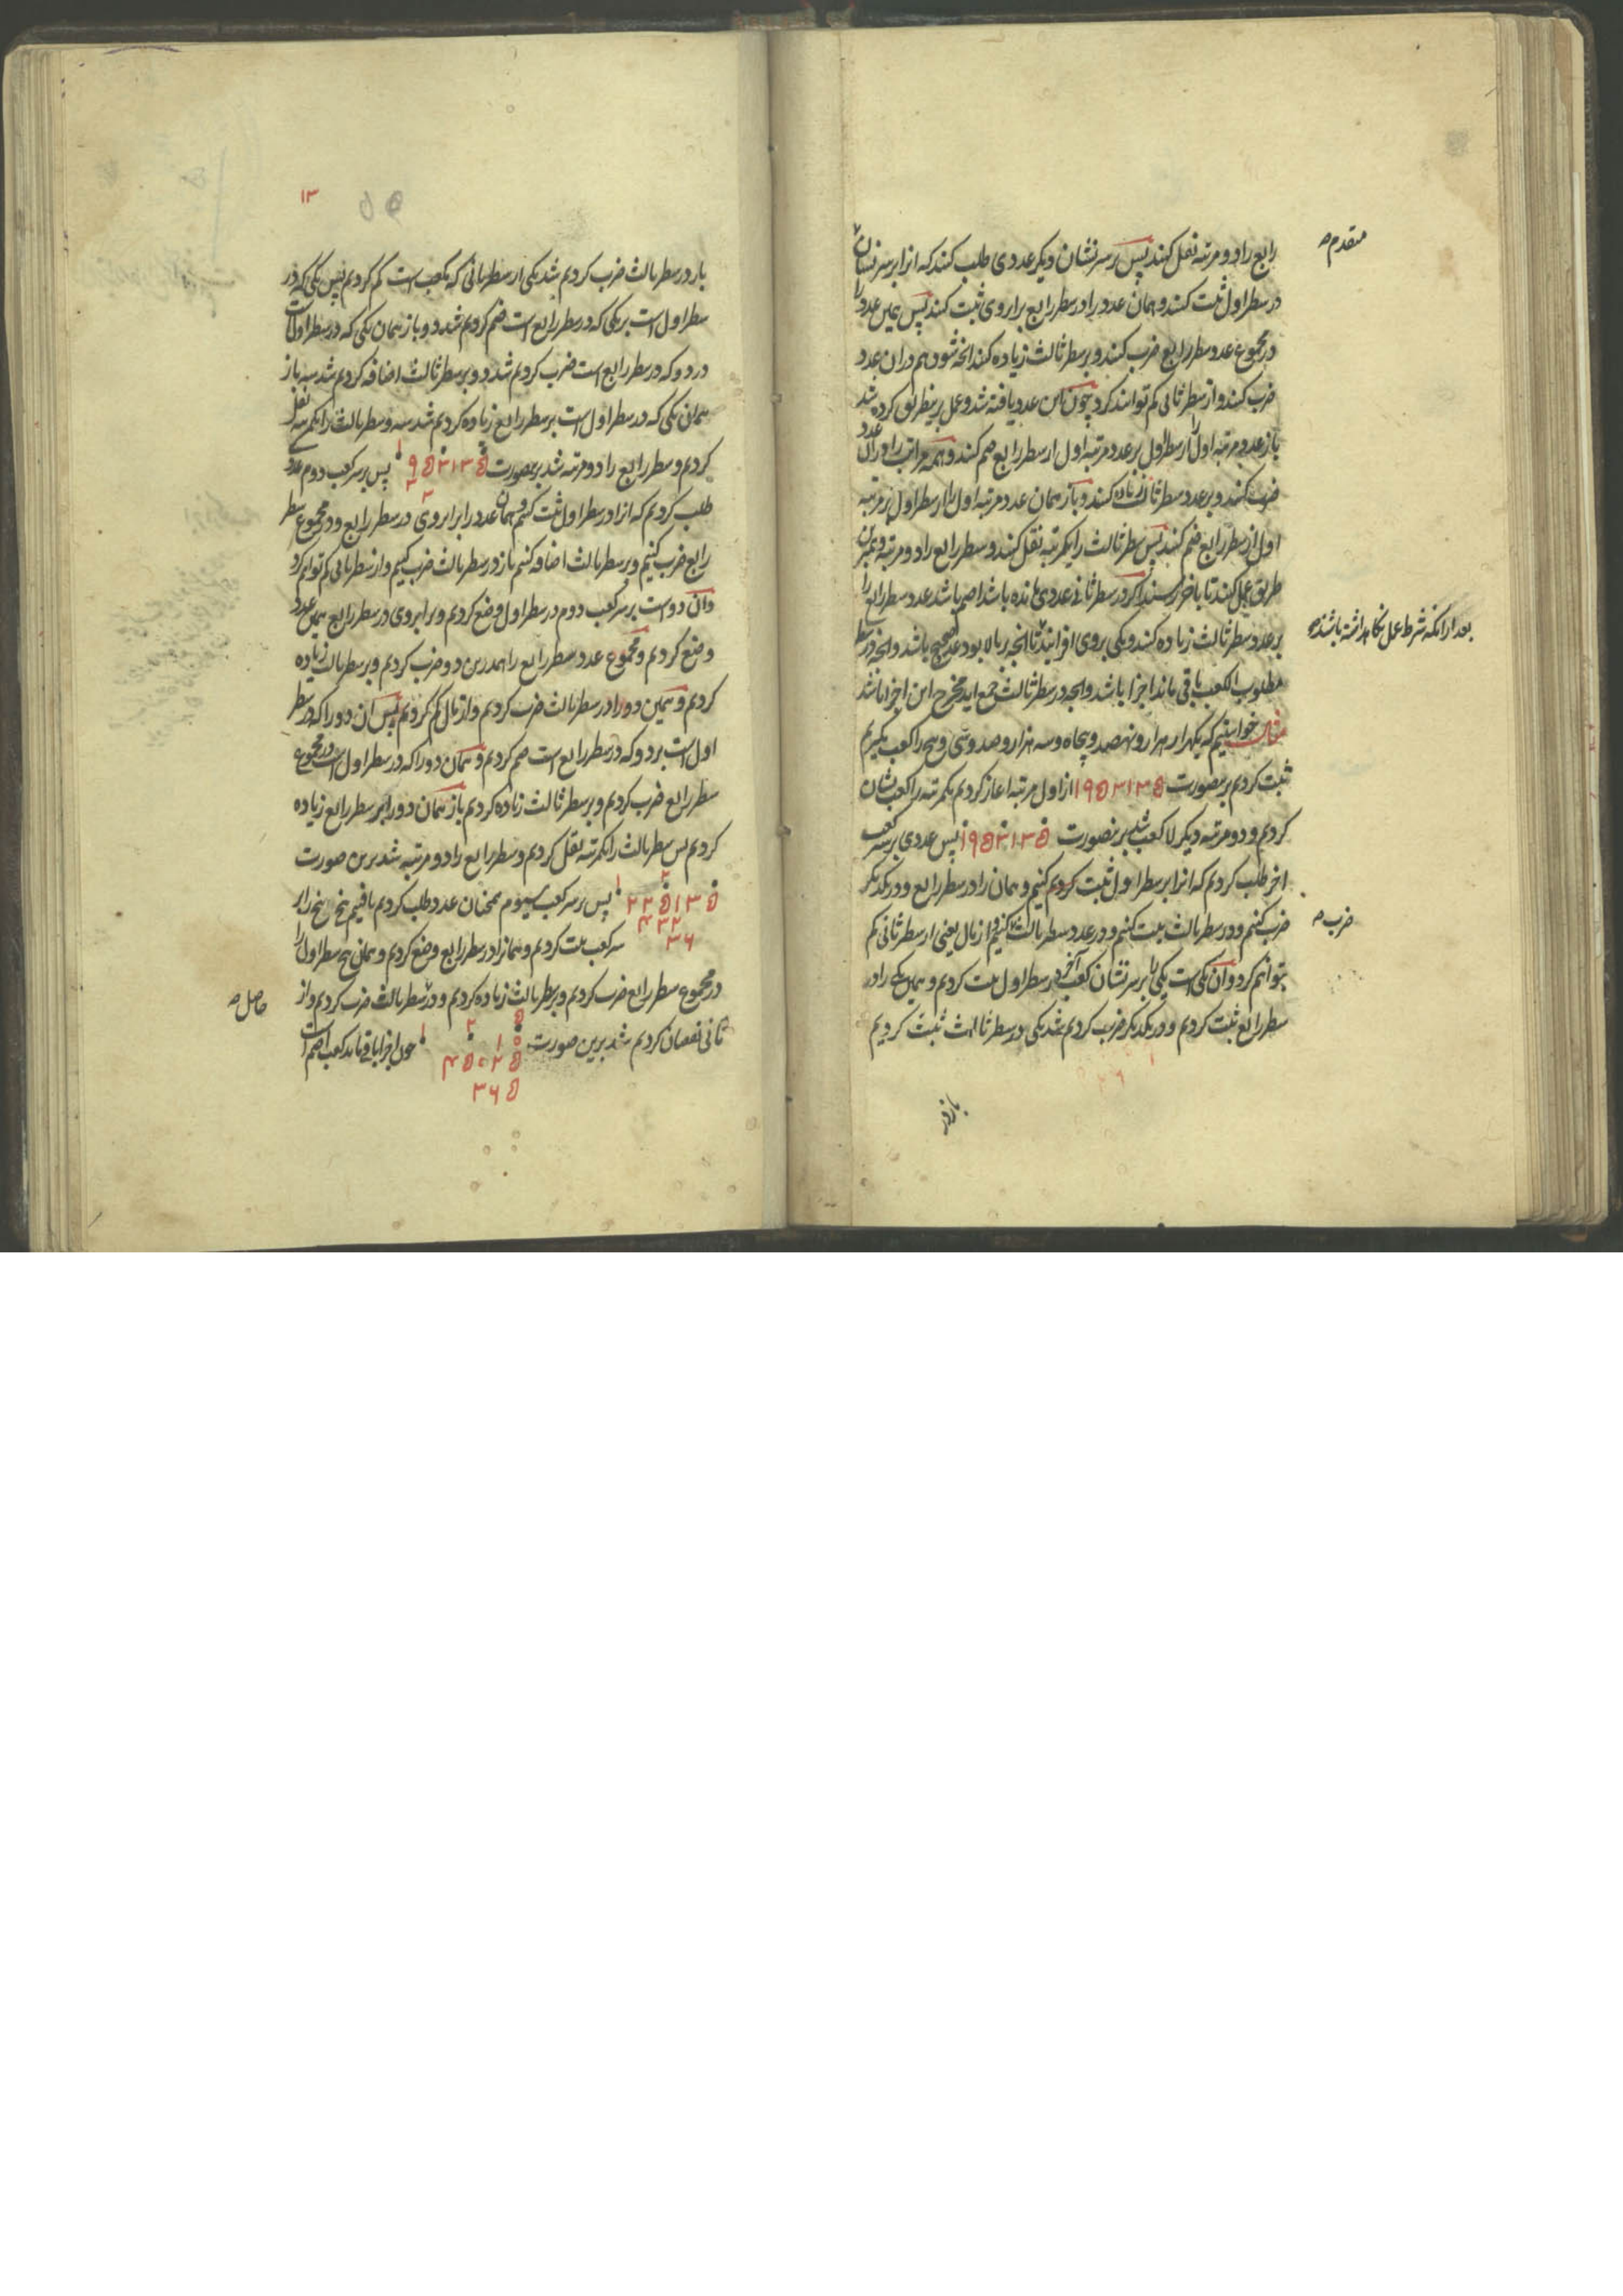 رابع را دو مرتبه نقل کنند پس بر سر نشان دیگر عددی طلب کنند که انرا بر سر نشان
متقدم صح
در سطر اول ثبت کنند و همان عدد را در سطر رابع برابر وی ثبت کنند پس همین عدد را
در مجموع عدد سطر رابع ضرب کنند و بر سطر ثالث زیاده کنند انچه شود هم در ان عدد
ضرب کنند و از سطر ثانی کم توانند کرد چون این عدد یافته شد و عمل برینطریق کرده شد
باز عدد مرتبه اول را از سطر اول بر عدد مرتبه اول از سطر رابع ضم کنند و همه مراتب را در ان عدد
ضرب کنند و بر عدد سطر ثالث زیاده کنند و باز همان عدد مرتبه اول را از سطر اول بر مرتبه
اول از سطر رابع ضم کنند پس سطر ثالث را یکمرتبه نقل کنند و سطر رابع را دو مرتبه و همبرین
طریق عمل کنند تا باخر رسند اکر در سطر ثانی عددی مانده باشد اصم باشد عدد سطر رابع را
بعد از انکه شرط عمل نکاهداشته باشند صح
بر عدد سطر ثالث زیاده کنند و یکی بروی افزایند تا انچه بر بالا بود عدد صحیح باشد و انچه در سطر
مطلوب الکعب باقی ماند اجزا باشد و انچه در سطر ثالث جمع اید مخرج این اجزا باشد
مثالش خواستیم که یکهزار هزار و نهصد و پنجاه و سه هزار و صد و سی و پنج را کعب بکیریم
ثبت کردیم برینصورت ۱۹۵۳۱۳۵ از اول مرتبه اغاز کردیم یکمرتبه را کعب نشان
کردیم و دو مرتبه دیکر لا کعب شد برینصورت ۱۹۵۳۱۳۵ پس عددی بر سر کعب
اخر طلب کردیم که انرا بر سطر اول ثبت کنیم و همان را در سطر رابع و در یکدیکر
ضرب کنیم و در سطر ثالث ثبت کنیم و در عدد سطر ثالث کنیم و از مال یعنی از سطر ثانی کم
ضرب صح
بتوانیم کرد و ان یکی است یکی بر سر نشان کعب اخر در سطر اول ثبت کردیم و همان یکی را در
سطر رابع ثبت کردیم و در یکدیکر ضرب کردیم شد یکی در سطر ثالث ثبت کردیم
باز در
۱۳
باز در سطر ثالث ضرب کردیم شد یکی از سطر ثانی که یکعب است کم کردیم پس یکی که در
سطر اول است بر یکی که در سطر رابع است ضم کردیم شد دو و باز همان یکی که در سطر اول است
در دو که در سطر رابع است ضرب کردیم شد دو و بر سطر ثالث اضافه کردیم شد سه باز
همان یکی که در سطر اول است بر سطر رابع زیاده کردیم شد سه و سطر ثالث را یکمرتبه نقل
کردیم و سطر رابع را دو مرتبه شد برینصورت ۹۵۳۱۳۵ پس بر سر کعب دوم عدد
طلب کردیم که انرا در سطر اول ثبت کنیم و همان عدد را برابر وی در سطر رابع و در مجموع سطر
رابع ضرب کنیم و بر سطر ثالث اضافه کنیم باز در سطر ثالث ضرب کنیم و از سطر ثانی کم توانیم کرد
و ان دو است بر سر کعب دوم در سطر اول وضع کردیم و برابر وی در سطر رابع همین عدد
وضع کردیم و مجموع عدد سطر رابع را همدرین دو ضرب کردیم و بر سطر ثالث زیاده
کردیم و همین دو را در سطر ثالث ضرب کردیم و از مال کم کردیم پس ان دو را که در سطر
اول است بر دو که در سطر رابع است ضم کردیم و همان دو را که در سطر اول است در مجموع
سطر رابع ضرب کردیم و بر سطر ثالث زیاده کردیم باز همان دو را بر سطر رابع زیاده
کردیم پس سطر ثالث را یکمرتبه نقل کردیم و سطر رابع را دو مرتبه شد برین صورت
۲۲۵۱۳۵ پس بر سر کعب سیوم همچنان عدد طلب کردیم یافتیم پنج پنج را بر
۴۳۲
۳۶
سر کعب ثبت کردیم و همانرا در سطر رابع وضع کردیم و همان پنج سطر اول را
در مجموع سطر رابع ضرب کردیم و بر سطر ثالث زیاده کردیم و در سطر ثالث ضرب کردیم و از
حاصل صح
ثانی نقصان کردیم شد برین صورت ۱ ۲ ۵ چون اجزا باقی ماند کعب اصم است
۱۰
۴۵۰۲۵
۳۶۵